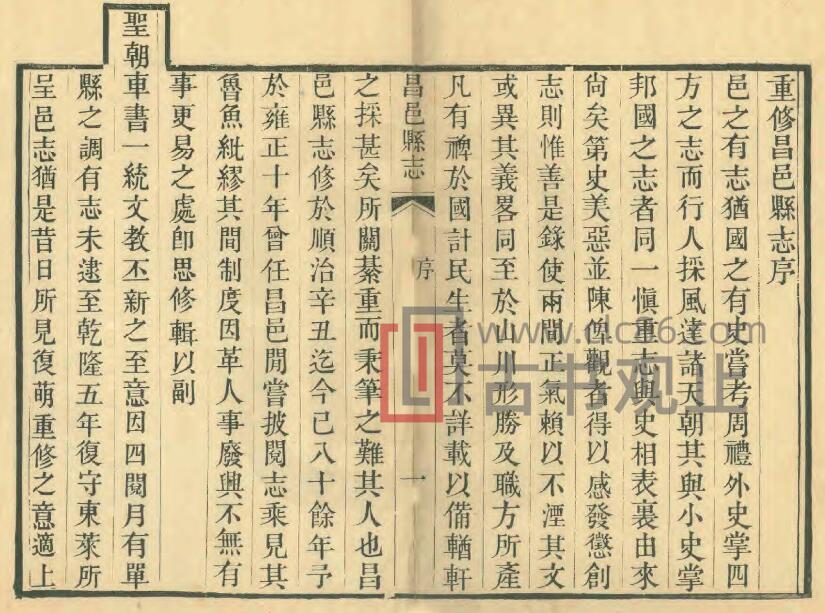 重修昌邑縣志序
邑之有志猶國之有史嘗考周禮外史掌四
方之志而行人採風達諸天朝其與小史掌
邦國之志者同一愼重志與史相表裏由來
尙矣第史美惡並陳俾觀者得以感發懲創
志則惟善是錄使兩間正氣賴以不湮其文
或異其義畧同至於山川形勝及職方所產
凡有裨於國計民生者莫不詳載以備輶軒
昌邑縣志
序
一
之採甚矣所關綦重而秉筆之難其人也昌
邑縣志修於順治辛丑迄今已八十餘年予
於雍正十年曾任昌邑閒嘗披閱志乘見其
魯魚紕繆其間制度因革人事廢興不無有
事更易之處卽思修輯以副
聖朝車書一統文教丕新之至意因四閱月有單
縣之調有志未逮至乾隆五年復守東萊所
呈邑志猶是昔日所見復萌重修之意適上
www.dc16.com
古书观止